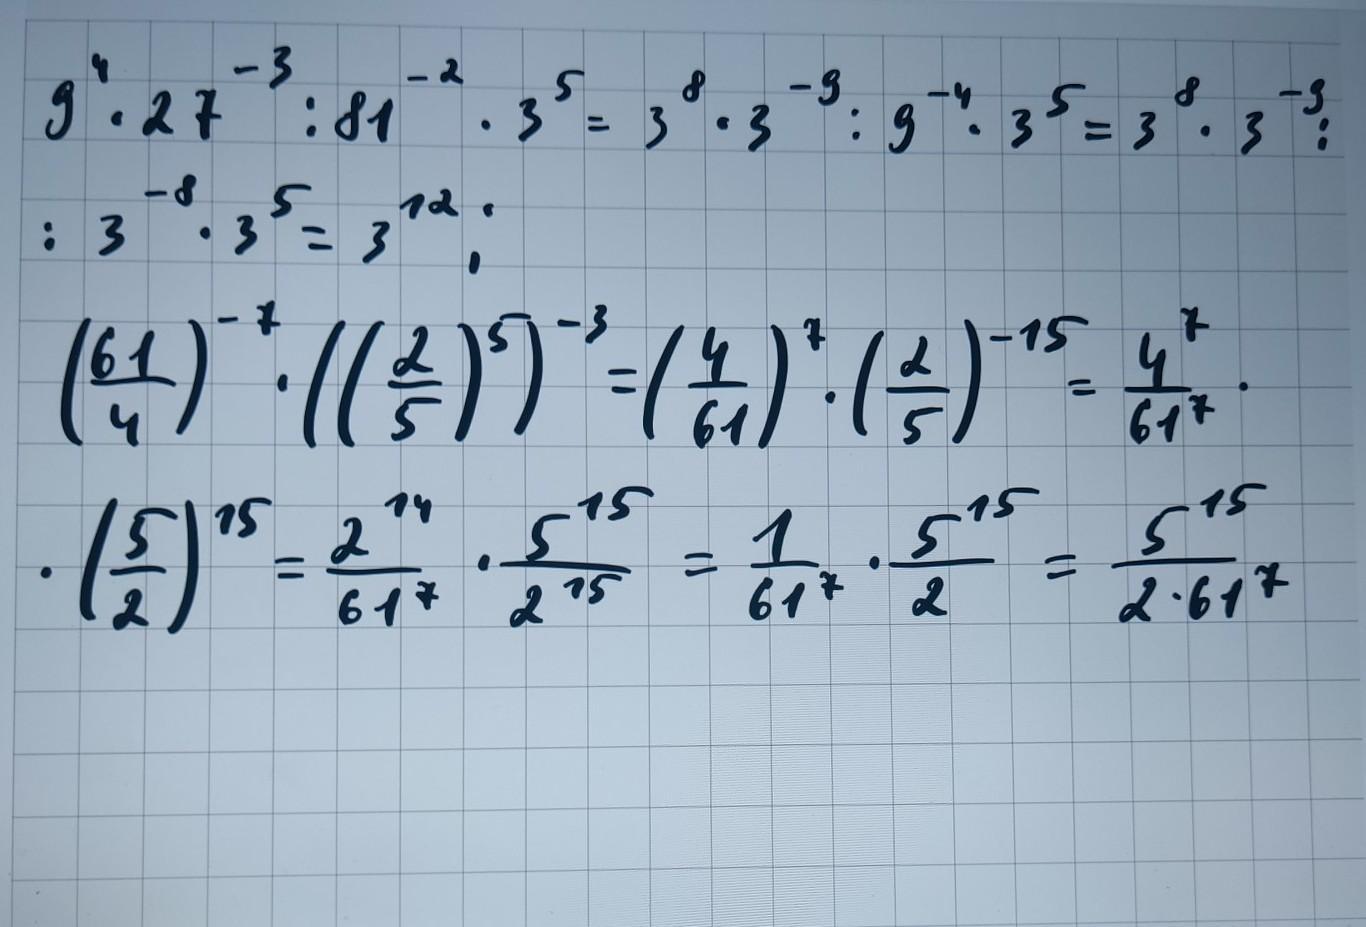 9^4 · 27^{-3} : 81^{-2} · 3^5 = 3^8 · 3^{-9} : 9^{-4} · 3^5 = 3^8 · 3^{-9} :
: 3^{-8} · 3^5 = 3^{12} ;
(\frac{61}{4})^{-7} · ((\frac{2}{5})^5)^{-3} = (\frac{4}{61})^7 · (\frac{2}{5})^{-15} = \frac{4^7}{61^7} ·
· (\frac{5}{2})^{15} = \frac{2^{14}}{61^7} · \frac{5^{15}}{2^{15}} = \frac{1}{61^7} · \frac{5^{15}}{2} = \frac{5^{15}}{2·61^7}